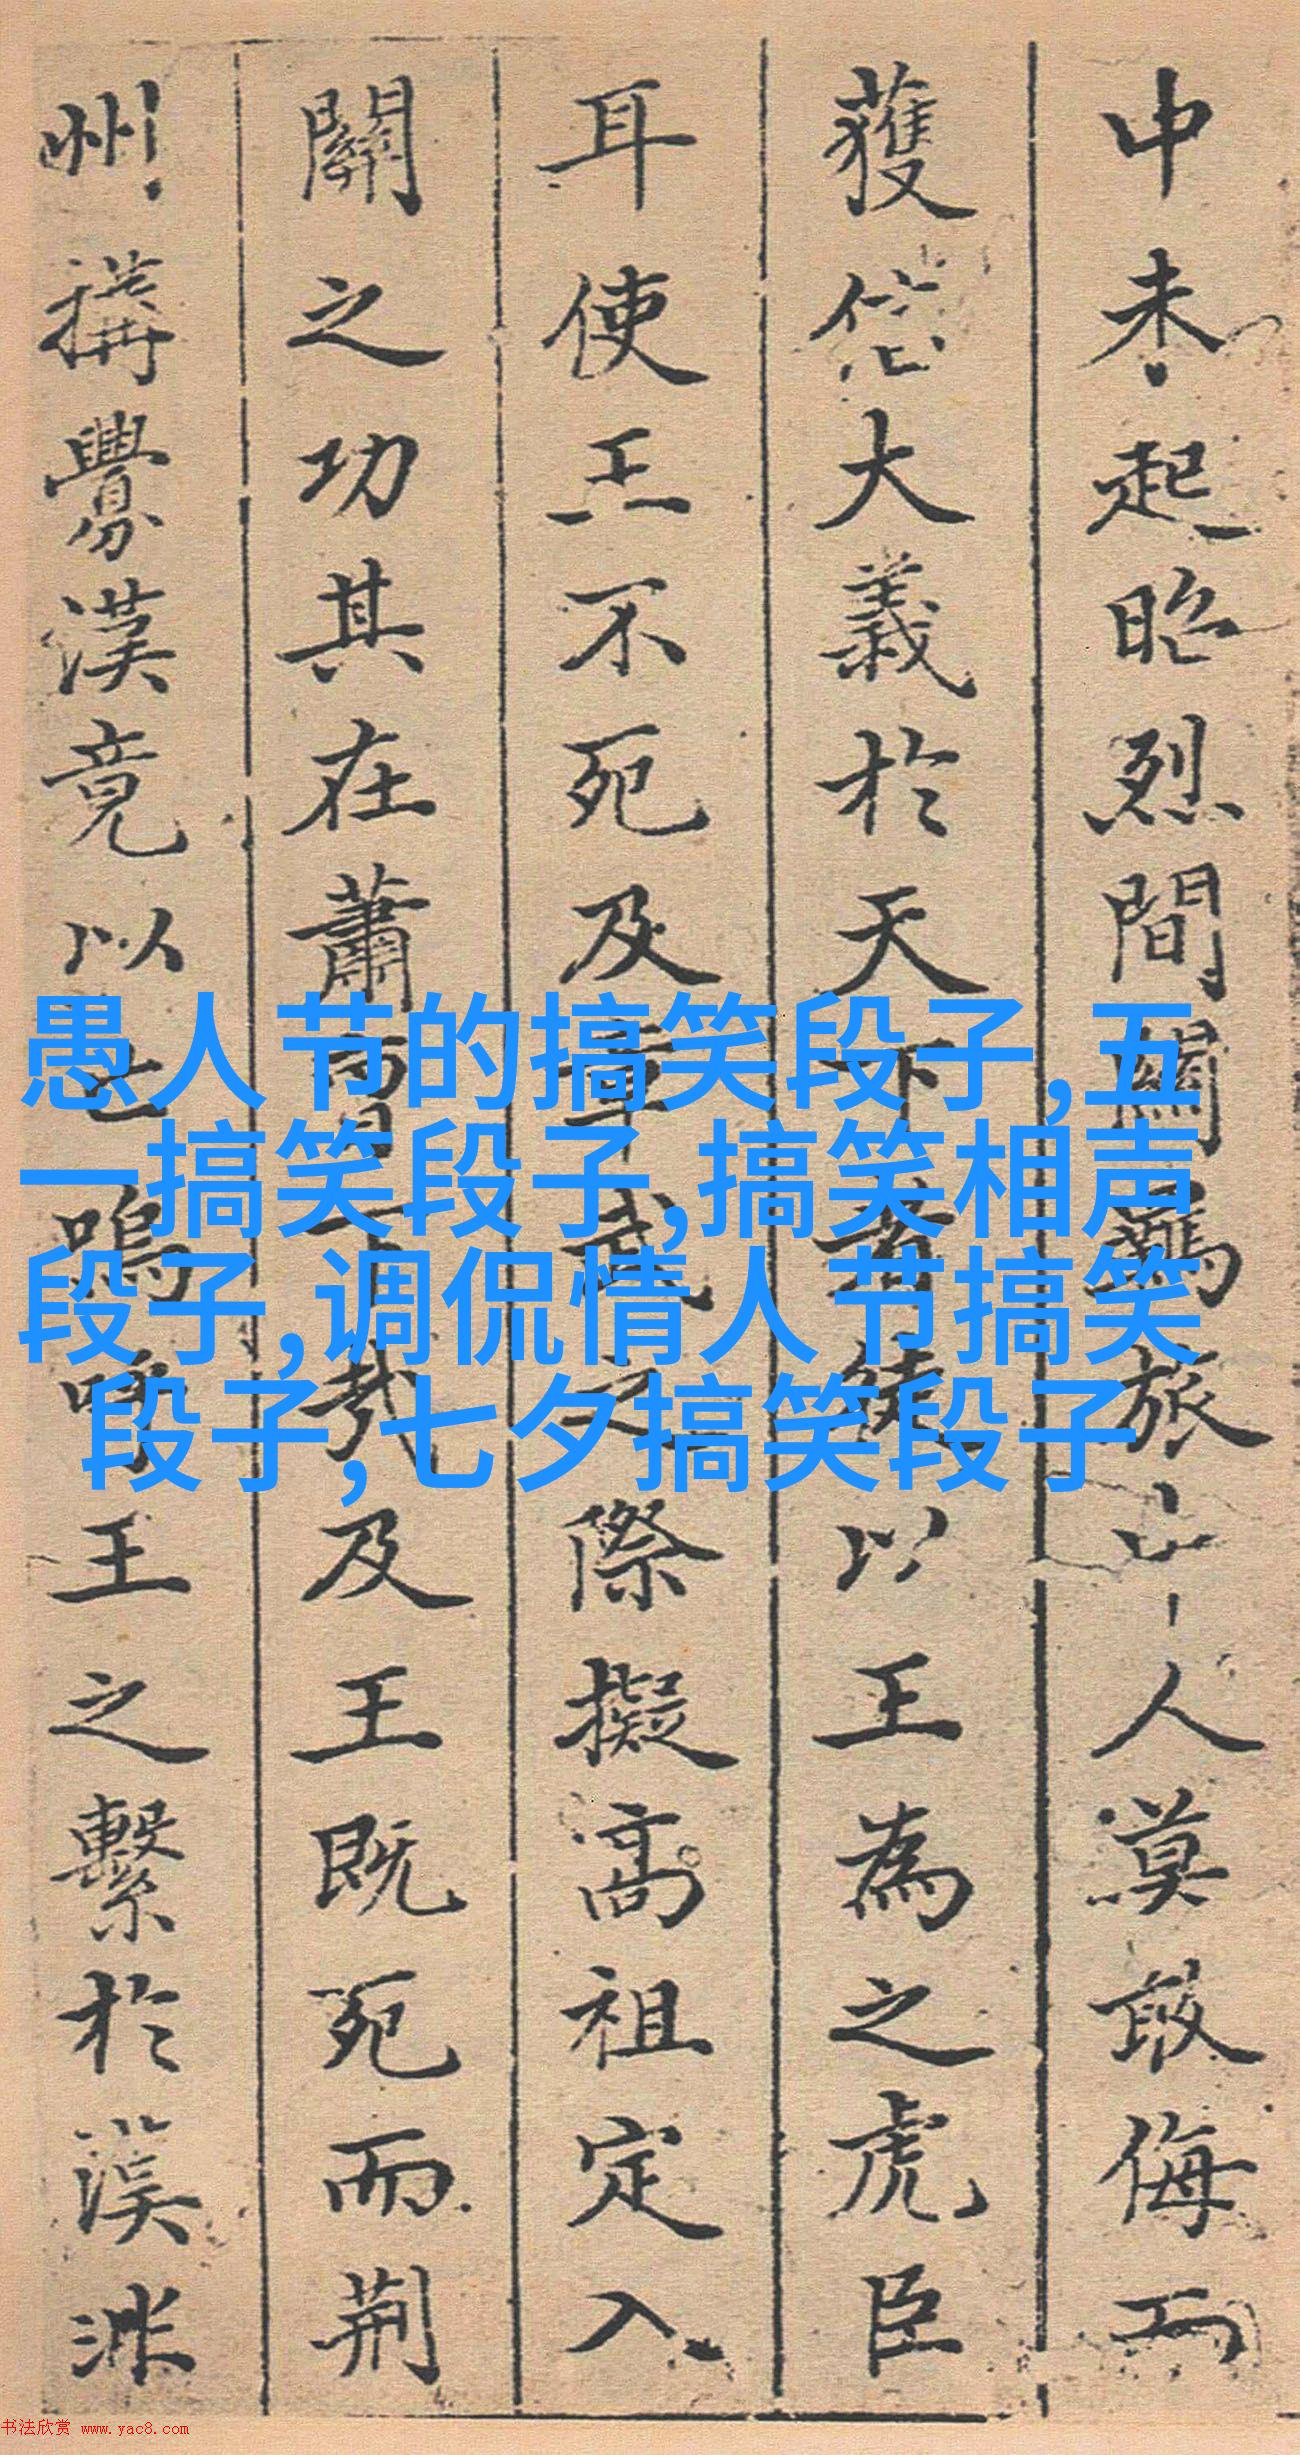 中未起昭烈間關羈旅人莫敢侮而
獲信大義於天下者徒以王為之虎臣
耳使王不死及章武之際擬高祖定入
關之功其在蕭曹下哉及王既死而荊
州搆釁漢竟以亡嗚呼王之繫於漢非
愚人节的搞笑段子,五
一搞笑段子,搞笑相声
段子,调侃情人节搞笑
段子,七夕搞笑段子
书法欣赏 www.yac8.com